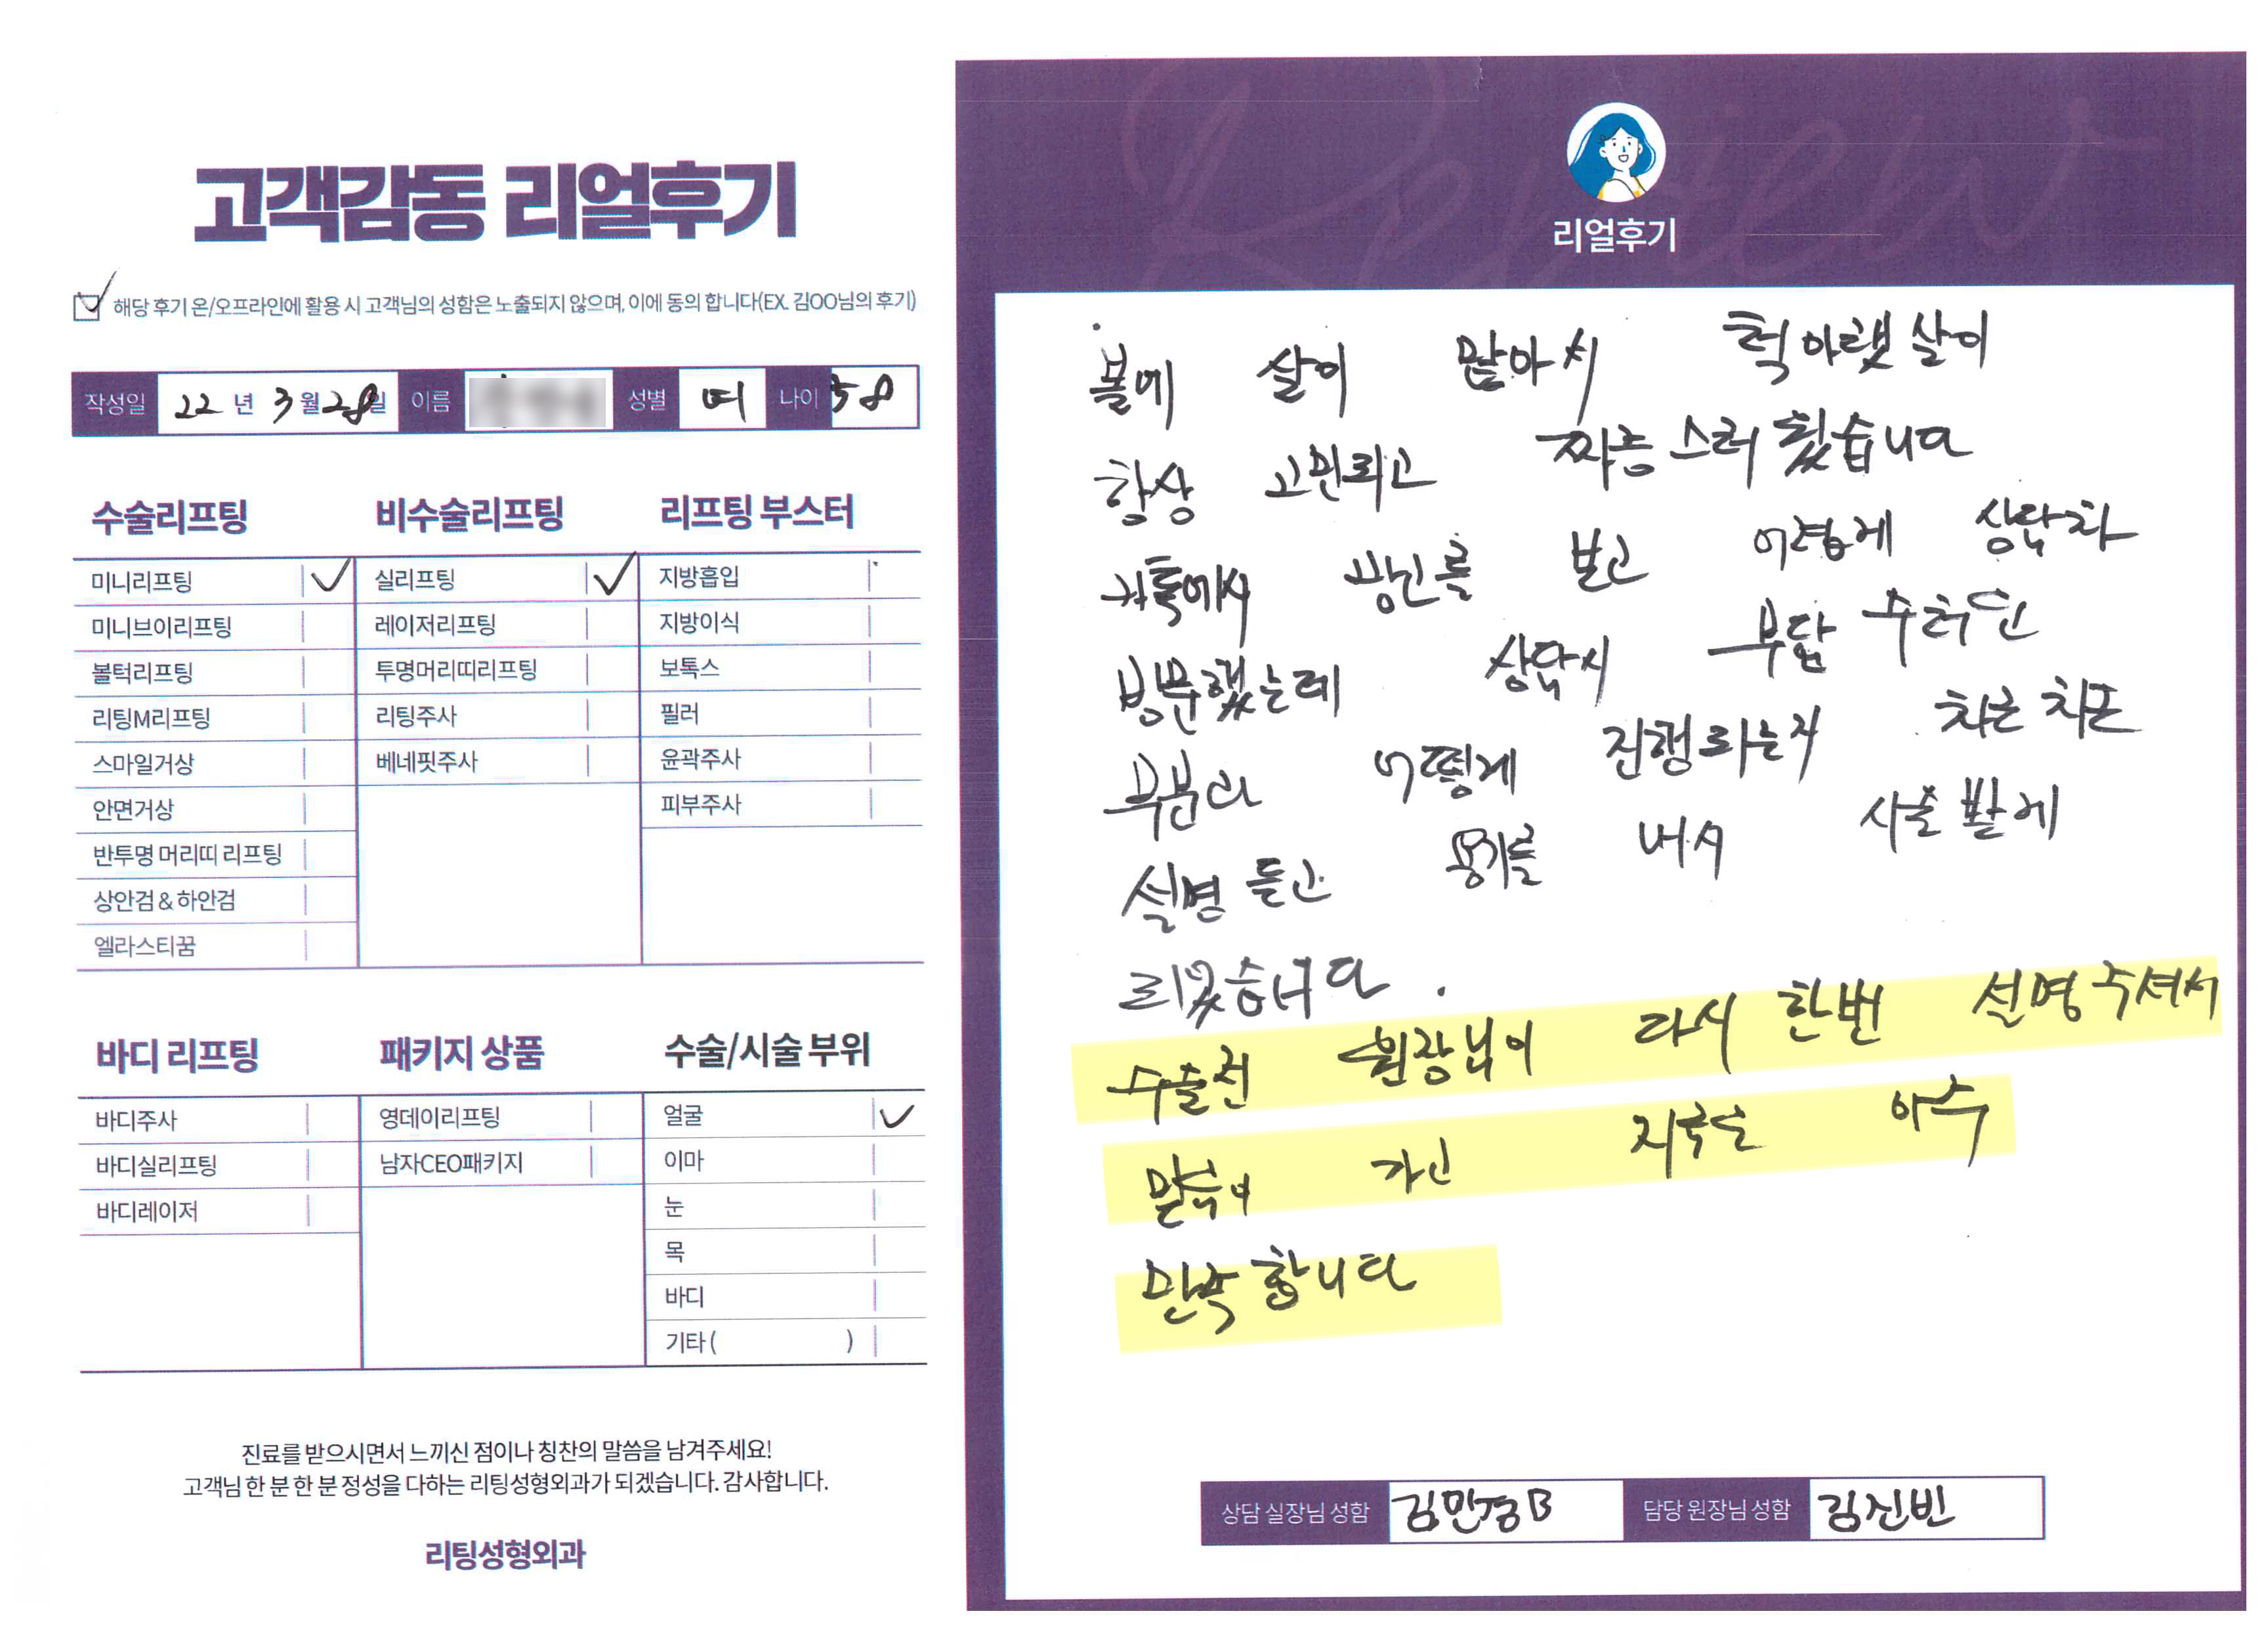 고객감동 리얼후기
해당 후기 온/오프라인에 활용 시 고객님의 성함은 노출되지 않으며, 이에 동의 합니다(EX. 김OO님의 후기)
작성일 22년 3월 28일 이름 성별 여 나이 58
수술리프팅
미니리프팅
미니브이리프팅
볼턱리프팅
리팅M리프팅
스마일거상
안면거상
반투명 머리띠 리프팅
상안검 & 하안검
엘라스티꿈
비수술리프팅
실리프팅
레이저리프팅
투명머리띠리프팅
리팅주사
베네핏주사
리프팅 부스터
지방흡입
지방이식
보톡스
필러
윤곽주사
피부주사
바디 리프팅
바디주사
바디실리프팅
바디레이저
패키지 상품
영데이리프팅
남자CEO패키지
수술/시술 부위
얼굴
이마
눈
목
바디
기타 ( )
진료를 받으시면서 느끼신 점이나 칭찬의 말씀을 남겨주세요!
고객님 한 분 한 분 정성을 다하는 리팅성형외과가 되겠습니다. 감사합니다.
리팅성형외과
리얼후기
볼에 살이 많아서 턱 아랫 살이
항상 고민되고 짜증스러웠습니다
보고 어렵게 상담차
방문했는데 상담시 부담
어떻게 진행하는지 차근 차근
설명 듣고 용기를 내서 시술 받게
되었습니다.
수술전 원장님이 다시 한번 설명 주셔서
믿음이 가니 지금은 아주
만족 합니다
상담 실장님 성함 김민경B 담당 원장님 성함 김진빈